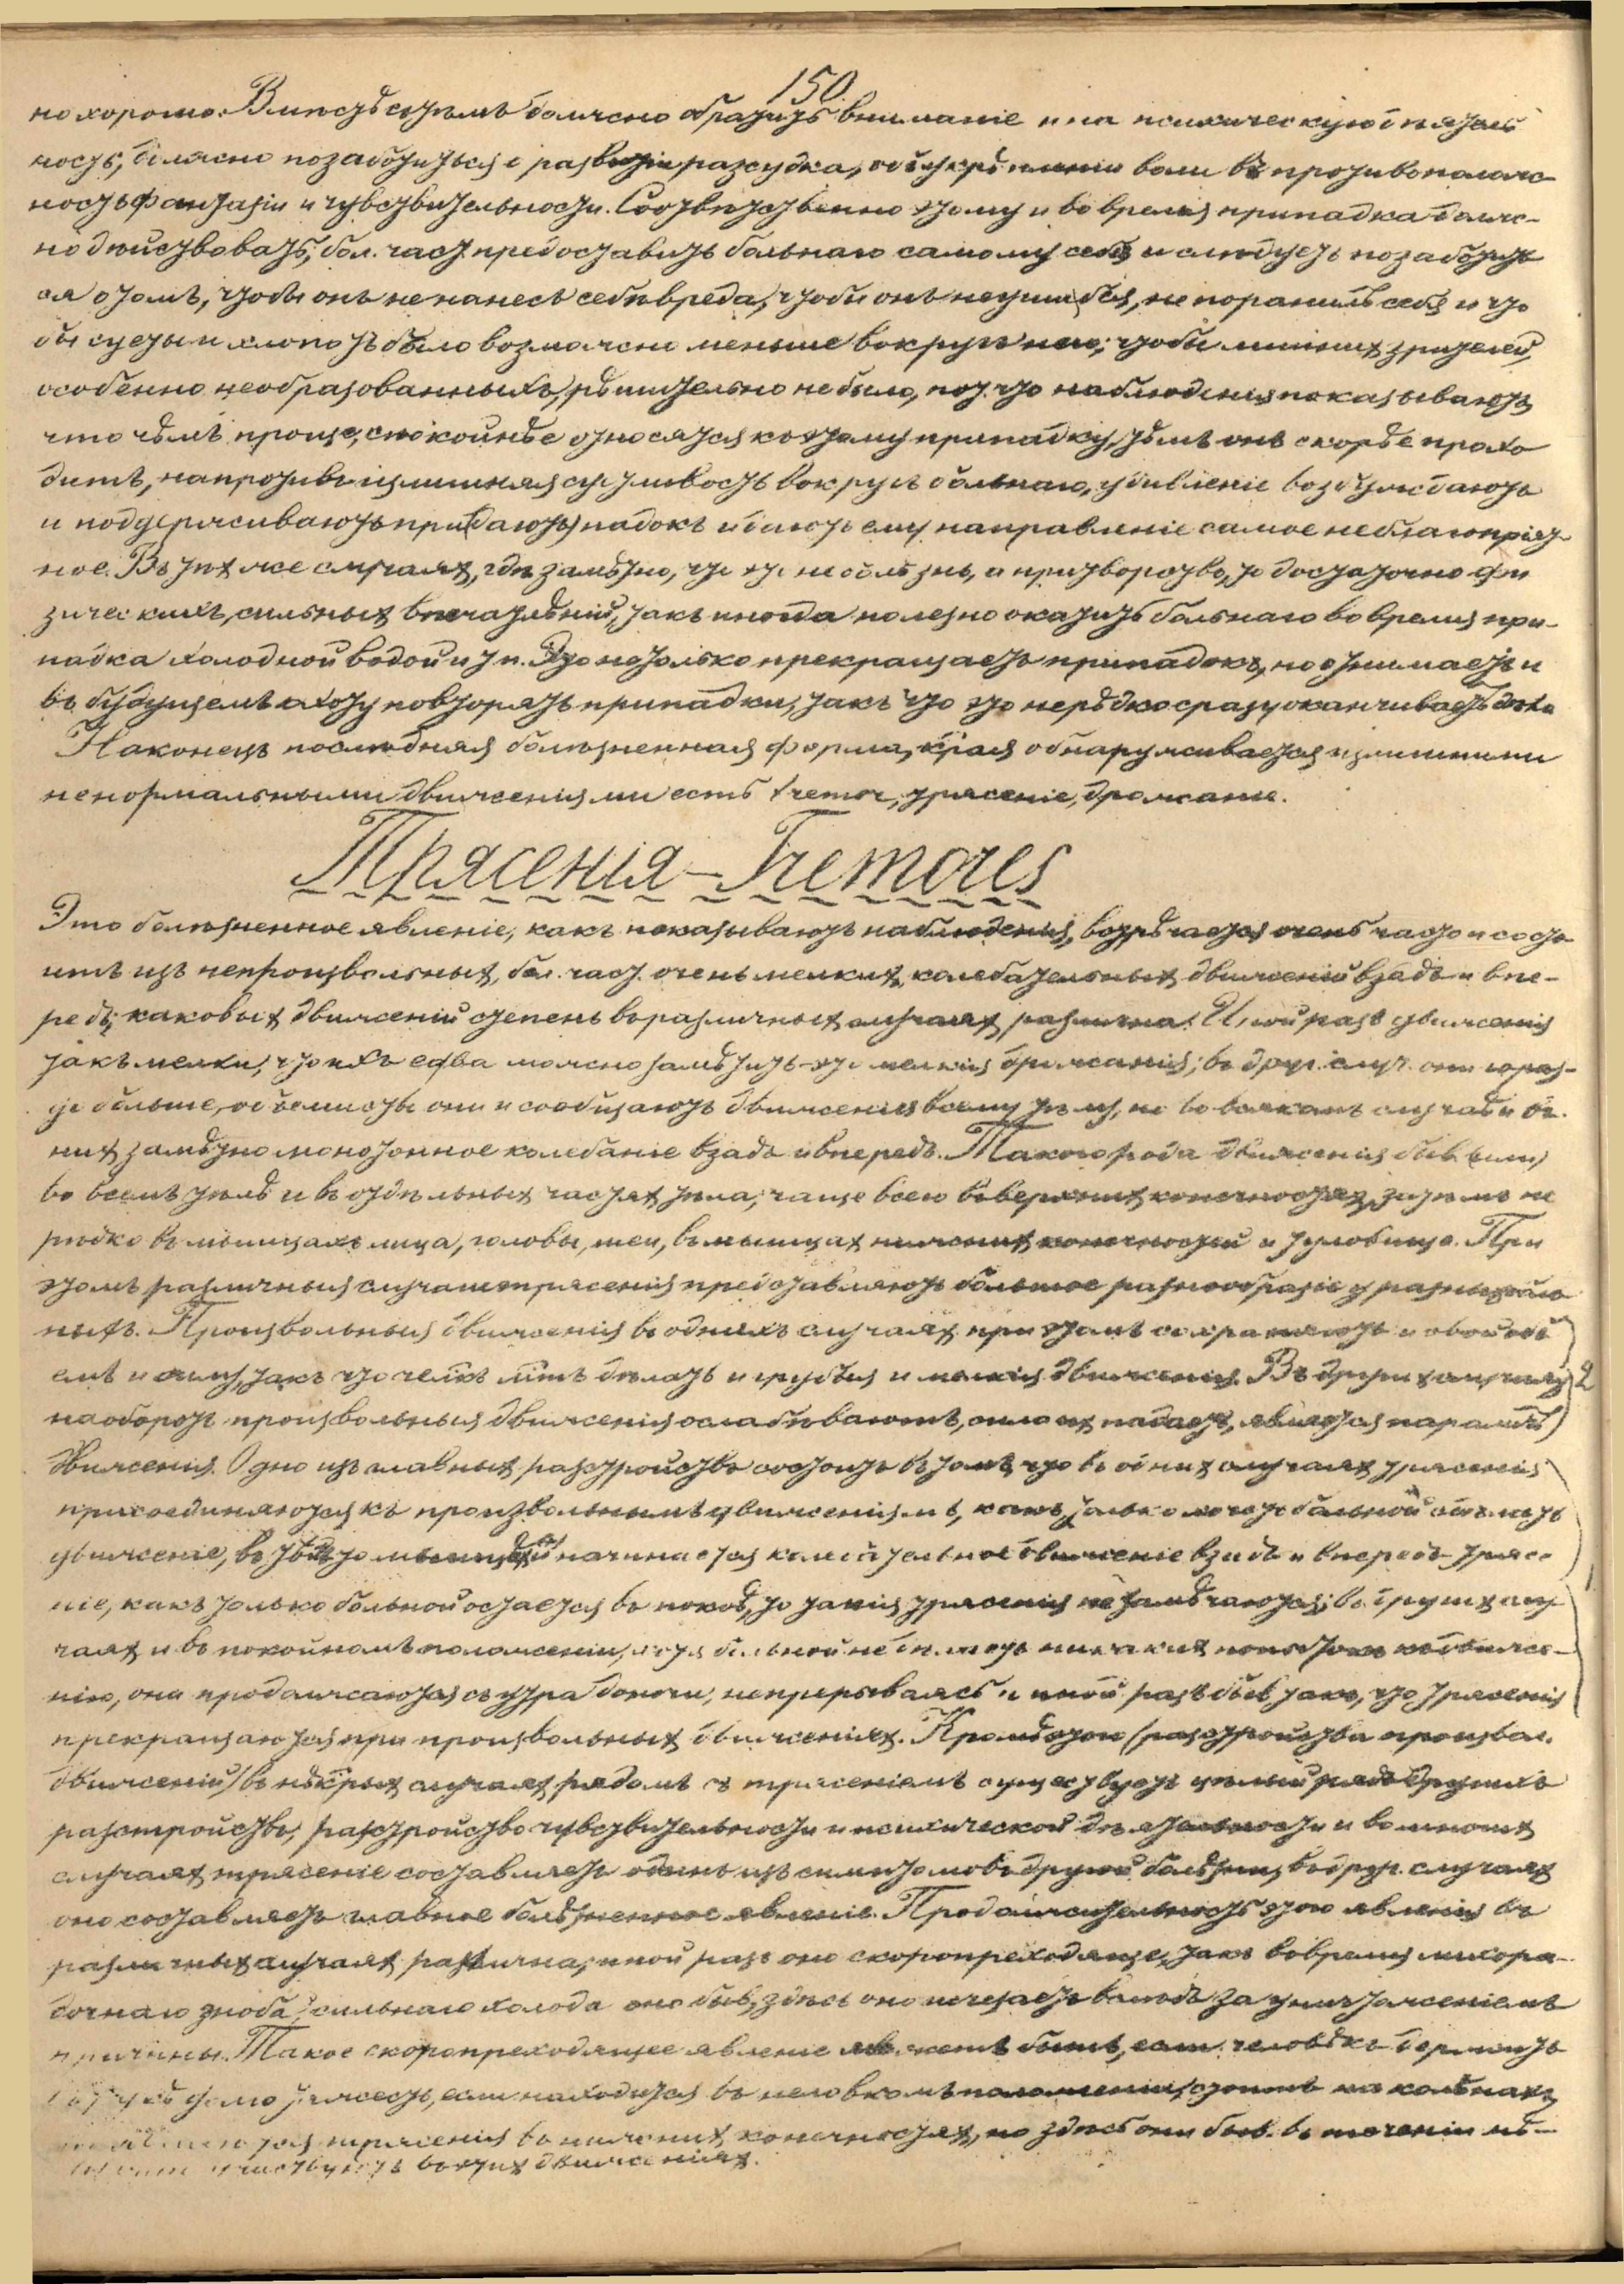 150.
но хорошо. Вмѣстѣ съ тѣмъ должно обратить вниманіе и на психическую дѣятель
ность, должно позаботиться о развитіи разсудка, объ укрѣпленіи воли въ противополож
ность фантазіи и чувствительности. Соотвѣтственно этому и во время припадка долж-
но дѣйствовать, бол. част. предоставить больнаго самому себѣ и слѣдуетъ позаботить
ся о томъ, чтобы онъ не нанесъ себѣ вреда, чтобы онъ не ушибся, не поранилъ себя и что
бы суеты и хлопотъ было возможно меньше вокругъ него; чтобы лишнихъ зрителей,
особенно необразованныхъ, рѣшительно не было, пот. что наблюденія показываютъ
что чѣмъ проще, спокойнѣе относятся къ этому припадку, тѣмъ онъ скорѣе прохо
дитъ, напротивъ излишняя суетливость вокругъ больнаго, удивленіе возбуждаютъ
и поддерживаютъ припадокъ и даютъ ему направленіе самое неблагопріят-
ное. Въ тѣх же случаях, гдѣ замѣтно, что это не болѣзнь, а притворство, то достаточно фи
зическихъ, сильных впечатлѣній, такъ иногда полезно окатить больнаго во время при-
падка холодной водой и т. п. Это не только прекращаетъ припадокъ, но отнимаетъ и
въ будущемъ охоту повторять припадки, такъ что это нерѣдко сразу оканчиваетъ дѣло
Наконецъ послѣдняя болѣзненная форма, к͞рая обнаруживается излишними
ненормальными движеніями есть tremor, трясеніе, дрожаніе.
Трясенія – Tremores
Это болѣзненное явленіе, какъ показываютъ наблюденія, встрѣчается очень часто и состо
итъ изъ непроизвольных, бол. част. очень мелких, колебательных движеній взадъ и впе-
редъ, каковых движеній степень въ различных случаях различна. Иной разъ движенія
такъ мелки, что ихъ едва можно замѣтить – это мелкія дрожанія; въ друг. случ. они гораз-
до больше, объемисты они и сообщаютъ движенія всему тѣлу, но во всякомъ случаѣ и въ
них замѣтно монотонное колебаніе взадъ и впередъ. Такого рода движенія быв. или
во всемъ тѣлѣ и въ отдѣльных частях тѣла; чаще всего въ верхних конечностях, затѣмъ не
рѣдко въ мышцахъ лица, головы, шеи, въ мышцах нижних конечностей и туловища. При
этомъ различныя случаи трясенія представляютъ большое разнообразіе у разных боль
ныхъ. Произвольныя движенія въ однихъ случаях при этомъ сохраняютъ и свой объ
емъ и силу, такъ что челк͞ъ м͞тъ дѣлать и грубыя и мелкія движенія. Въ других случаях 2
наоборотъ произвольныя движенія ослабѣваютъ, сила их падаетъ, является параличъ
движенія. Одно изъ главных разстройствъ состоитъ въ томъ, что въ одних случаях трясенія
присоединяются къ произвольнымъ движеніямъ, какъ только хочетъ больной сдѣлать
движеніе, начинается колебательное движеніе взадъ и впередъ – трясе-
ніе, какъ только больной остается въ покоѣ, то такія трясенія не замѣчаются; въ других слу 1
чаях и въ покойномъ положеніи, хотя больной не дѣлаетъ никаких попытокъ къ движе-
нію, они продолжаются съ утра до ночи, непрерываясь и иной разъ быв. такъ, что трясенія
прекращаются при произвольных движеніях. Кромѣ того (разстройства произвол.
движеній) въ нѣк͞рых случаях рядомъ съ трясеніемъ существуетъ цѣлый рядъ другихъ
разстройствъ, разстройство чувствительности и психической дѣятельности и во многих
случаях трясеніе составляетъ одинъ изъ симптомовъ другой болѣзни, въ друг. случаях
оно составляетъ главное болѣзненное явленіе. Продолжительность этого явленія въ
различных случаях различна; иной разъ оно скоропреходяще, такъ во время лихора-
дочнаго зноба, сильнаго холода оно быв., здѣсь оно исчезаетъ вслѣдъ за уничтоженіемъ
причины. Такое скоропреходящее явленіе можетъ быть, если человѣкъ держитъ
тяжесть, если находится въ неловкомъ положеніи, стоитъ на колѣнахъ,
трясенія въ нижних конечностях, но здѣсь они быв. въ теченіи нѣ-
участвуютъ въ этих движеніях.